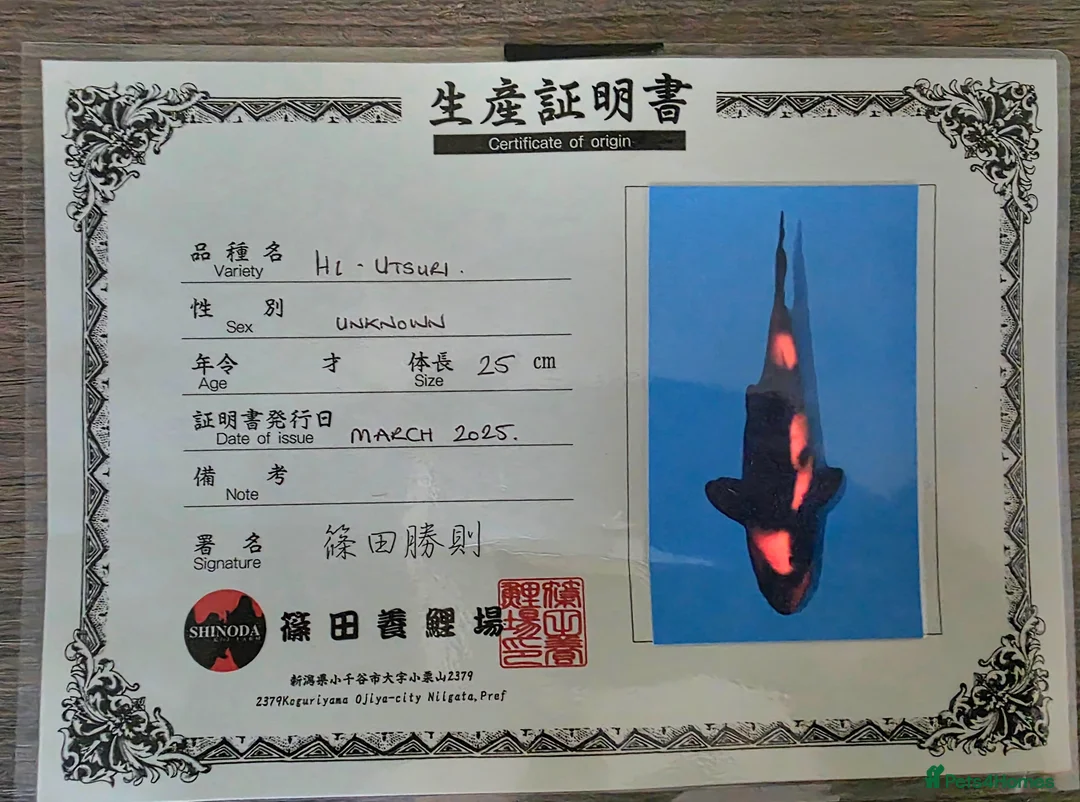 生産証明書
Certificate of origin
品種名 HI - UTSURI.
Variety
性別 UNKNOWN
Sex
年令 才 体長 25 cm
Age Size
証明書発行日 MARCH 2025.
Date of issue
備考
Note
署名 篠田勝則
Signature
SHINODA
篠田養鯉場
新潟県小千谷市大字小栗山2379
2379Koguriyama Ojiya-city Niigata,Pref
Pets4Homes